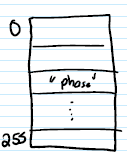 0
"phase"
255